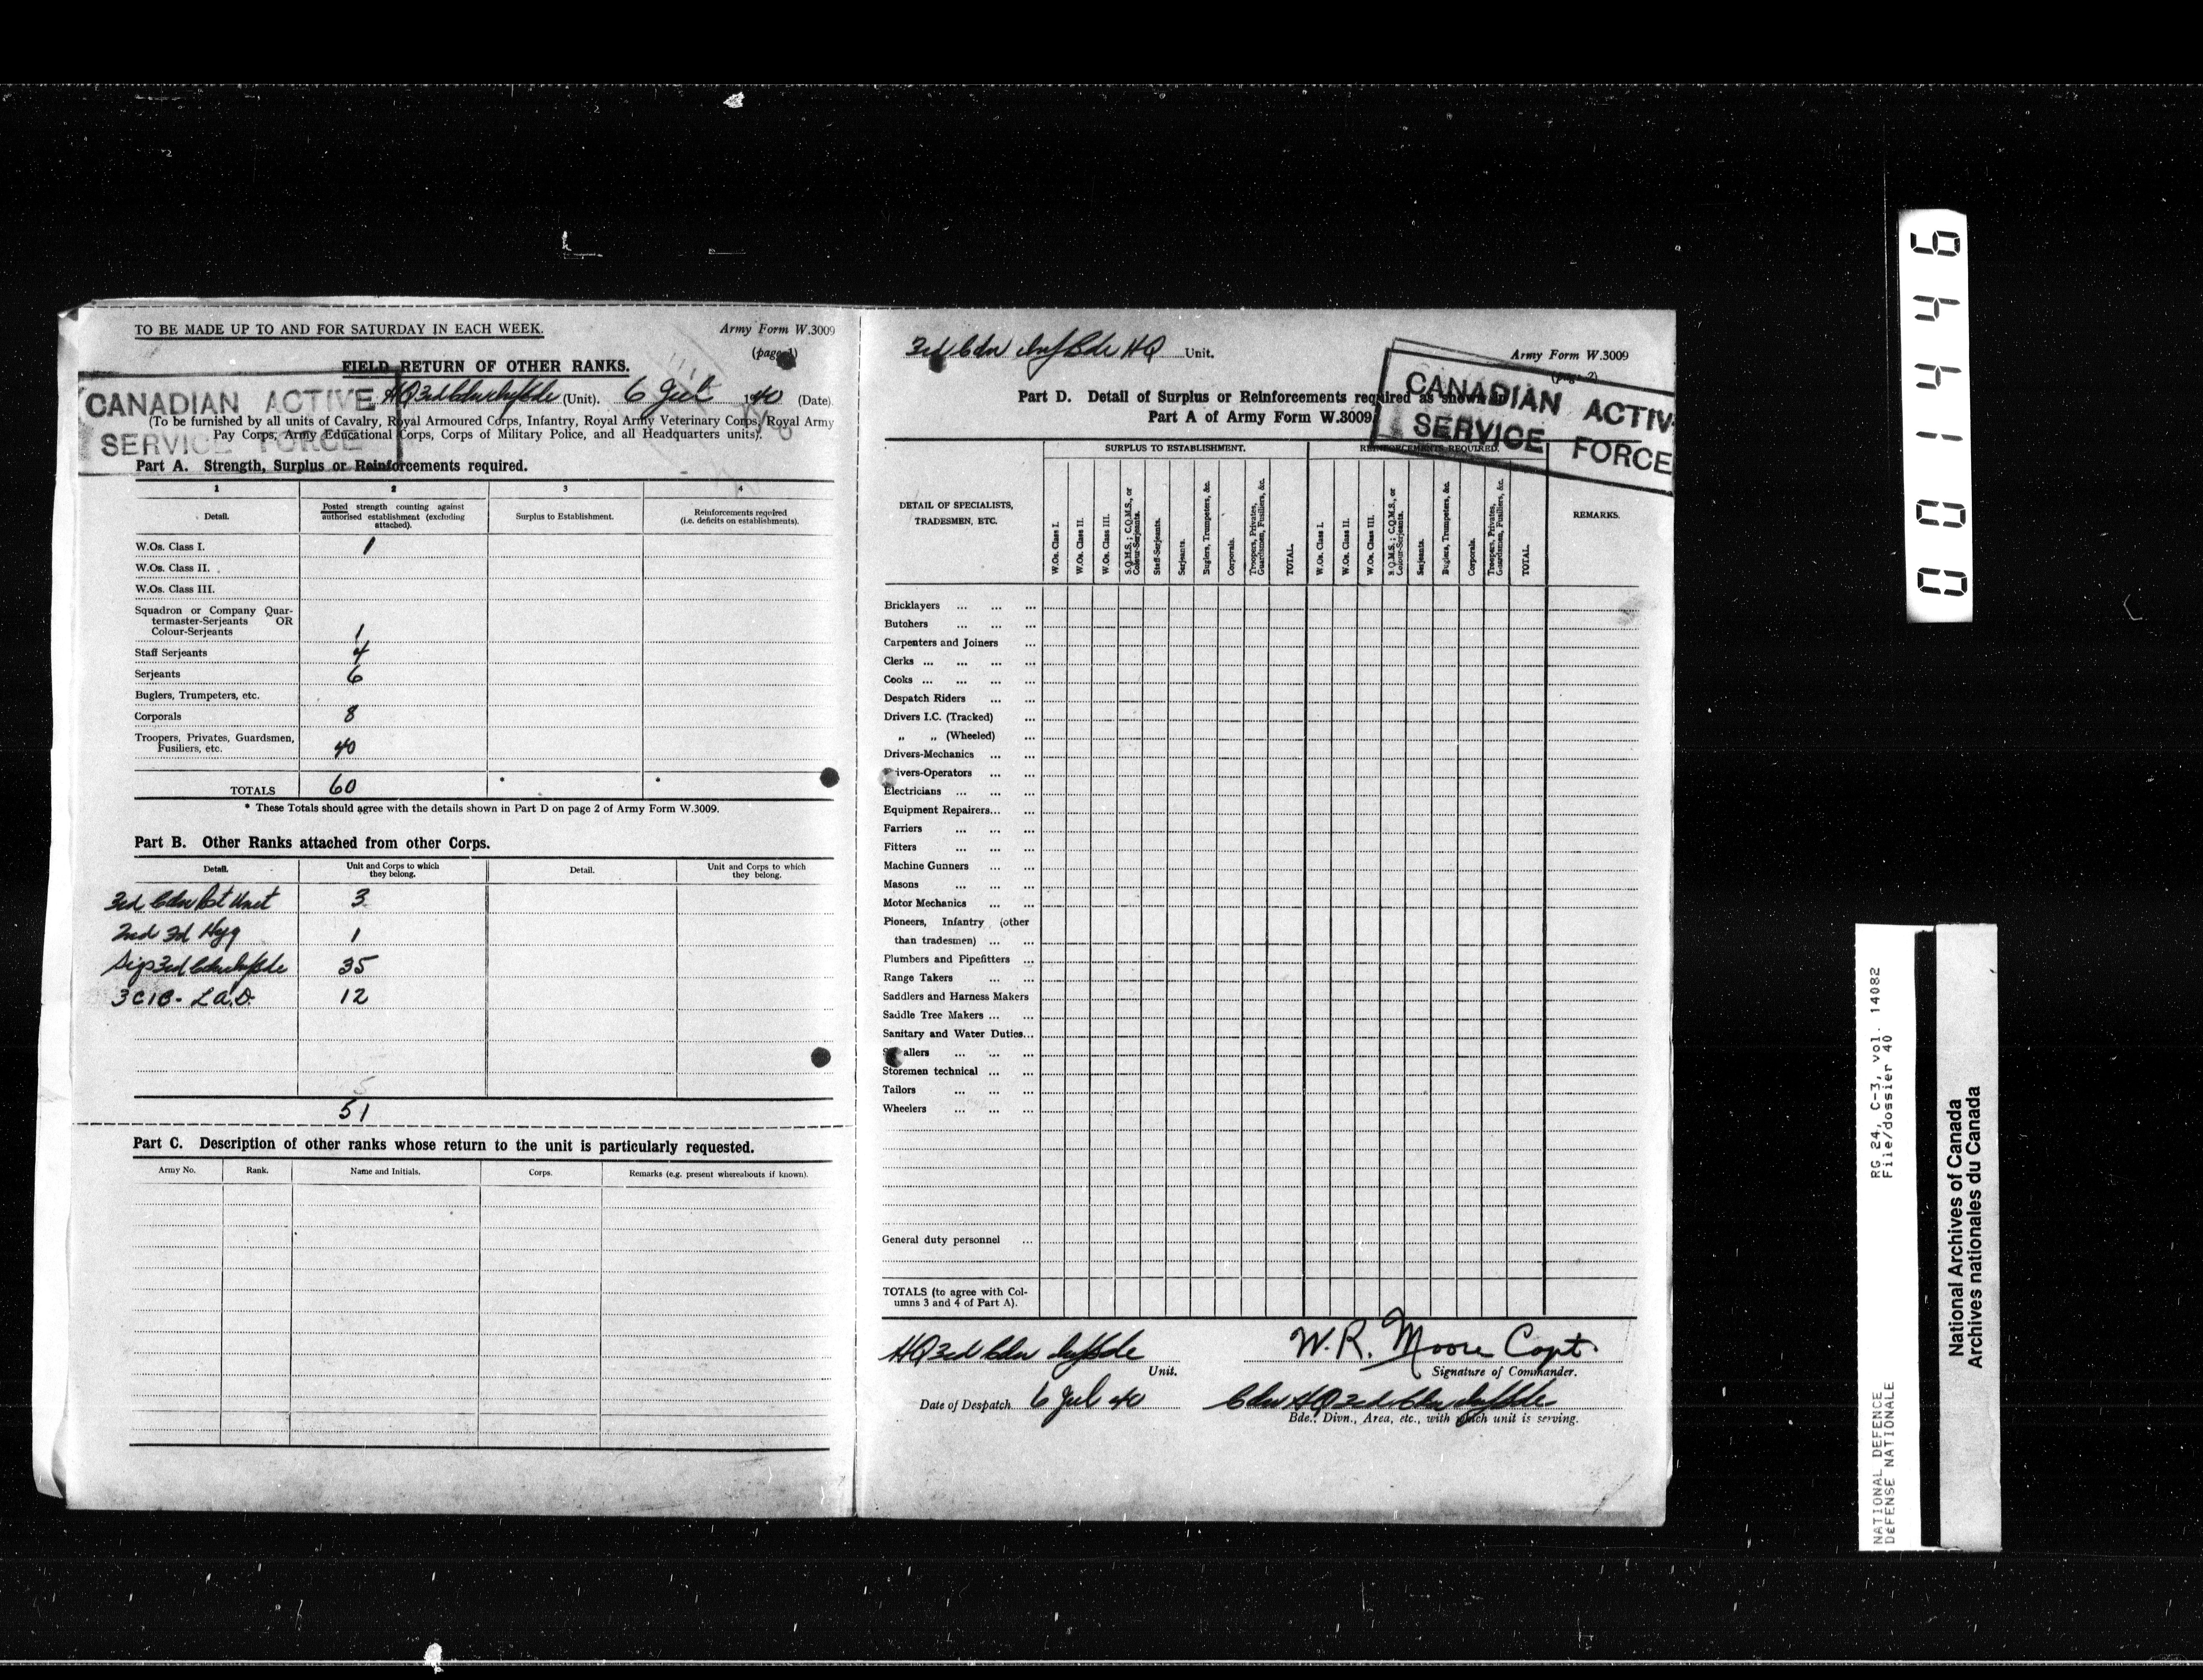 TO BE MADE UP TO AND FOR SATURDAY IN EACH WEEK.
Army Form W.3009
(page 1)
FIELD RETURN OF OTHER RANKS.
CANADIAN ACTIVE
SERVICE FORCE
HQ 3rd Cdn Inf Bde (Unit). 6 Jul 1940 (Date).
(To be furnished by all units of Cavalry, Royal Armoured Corps, Infantry, Royal Army Veterinary Corps, Royal Army
Pay Corps, Army Educational Corps, Corps of Military Police, and all Headquarters units).
Part A. Strength, Surplus or Reinforcements required.
1 2 3 4
Detail.
Posted strength counting against
authorised establishment (excluding
attached).
Surplus to Establishment.
Reinforcements required
(i.e. deficits on establishments).
W.Os. Class I. 1
W.Os. Class II.
W.Os. Class III.
Squadron or Company Quar-
termaster-Serjeants OR
Colour-Serjeants 1
Staff Serjeants 4
Serjeants 6
Buglers, Trumpeters, etc.
Corporals 8
Troopers, Privates, Guardsmen,
Fusiliers, etc. 40
TOTALS 60 * *
* These Totals should agree with the details shown in Part D on page 2 of Army Form W.3009.
Part B. Other Ranks attached from other Corps.
Detail.
Unit and Corps to which
they belong.
Detail.
Unit and Corps to which
they belong.
3rd Cdn Pst Unit 3
2nd Fd Hyg 1
Sigs 3rd Cdn Inf Bde 35
3 CIB. L.A.D. 12
51
Part C. Description of other ranks whose return to the unit is particularly requested.
Army No. Rank. Name and Initials. Corps. Remarks (e.g. present whereabouts if known).
3rd Cdn Inf Bde HQ Unit.
Army Form W.3009
(page 2)
CANADIAN ACTIV
SERVICE FORCE
Part D. Detail of Surplus or Reinforcements required as shown in
Part A of Army Form W.3009
DETAIL OF SPECIALISTS,
TRADESMEN, ETC.
SURPLUS TO ESTABLISHMENT.
REINFORCEMENTS REQUIRED.
REMARKS.
W.Os. Class I.
W.Os. Class II.
W.Os. Class III.
S.Q.M.S.; C.Q.M.S., or
Colour-Serjeants.
Staff-Serjeants.
Serjeants.
Buglers, Trumpeters, &c.
Corporals.
Troopers, Privates,
Guardsmen, Fusiliers, &c.
TOTAL.
W.Os. Class I.
W.Os. Class II.
W.Os. Class III.
S.Q.M.S.; C.Q.M.S., or
Colour-Serjeants.
Serjeants.
Buglers, Trumpeters, &c.
Corporals.
Troopers, Privates,
Guardsmen, Fusiliers, &c.
TOTAL.
Bricklayers ... ... ...
Butchers ... ... ...
Carpenters and Joiners ...
Clerks ... ... ... ...
Cooks ... ... ... ...
Despatch Riders ... ...
Drivers I.C. (Tracked) ...
„ „ (Wheeled) ...
Drivers-Mechanics ... ...
ivers-Operators ... ...
Electricians ... ... ...
Equipment Repairers... ...
Farriers ... ... ...
Fitters ... ... ...
Machine Gunners ... ...
Masons ... ... ...
Motor Mechanics ... ...
Pioneers, Infantry (other
than tradesmen) ... ...
Plumbers and Pipefitters ...
Range Takers ... ...
Saddlers and Harness Makers
Saddle Tree Makers ... ...
Sanitary and Water Duties...
S allers ... ... ...
Storemen technical ... ...
Tailors ... ... ...
Wheelers ... ... ...
General duty personnel ...
TOTALS (to agree with Col-
umns 3 and 4 of Part A).
HQ 3rd Cdn Inf Bde
Unit.
W. R. Moore Capt.
Signature of Commander.
Date of Despatch 6 Jul 40
Cdn HQ 3rd Cdn Inf Bde
Bde., Divn., Area, etc., with which unit is serving.
001446
NATIONAL DEFENCE RG 24, C-3, vol. 14082
DEFENSE NATIONALE File/dossier 40
National Archives of Canada
Archives nationales du Canada